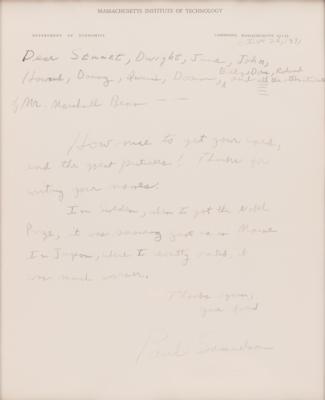 MASSACHUSETTS INSTITUTE OF TECHNOLOGY
DEPARTMENT OF ECONOMICS
CAMBRIDGE, MASSACHUSETTS 02139
Dear Stewart, Dwight, June, John,
Billy, Dora, Richard
Howard, Danny, and all the other students
of Mr. Marshall
How nice to get your card,
and the great pictures! Thanks for
writing your names.
In Sweden, when I got the Nobel
Prize, it was snowing just as in Maine
In Japan, where I recently visited, it
was much warmer.
Thanks again,
your friend
Paul Samuelson